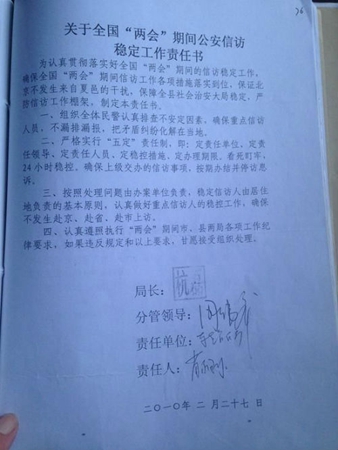 36
关于全国“两会”期间公安信访
稳定工作责任书
为认真贯彻落实好全国“两会”期间的信访稳定工作,
确保全国“两会”期间信访工作各项措施落实到位,保证北
京不发生来自夏邑的干扰,保障全县社会治安大局稳定,严
防信访工作棚架,制定本责任书。
一、组织全体民警认真排查不安定因素,确保重点信访
人员,不漏排漏报,把矛盾纠纷化解在当地。
二、严格实行“五定”责任制,即:定责任单位,定责
任领导,定责任人员,定稳控措施,定办理期限,看死盯牢,
24小时稳控、确保上级交办的信访事项,按期办结并停访息
诉。
三、按照处理问题由办案单位负责,稳定信访人由居住
地负责的基本原则,认真做好重点信访人的稳控工作,确保
不发生赴京、赴省、赴市上访。
四、认真遵照执行“两会”期间市、县两局各项工作纪
律要求,如果违反规定和以上要求,甘愿接受组织处理。
局长:
分管领导:
责任单位:
责任人:
二〇一〇年 二 月 二十七 日